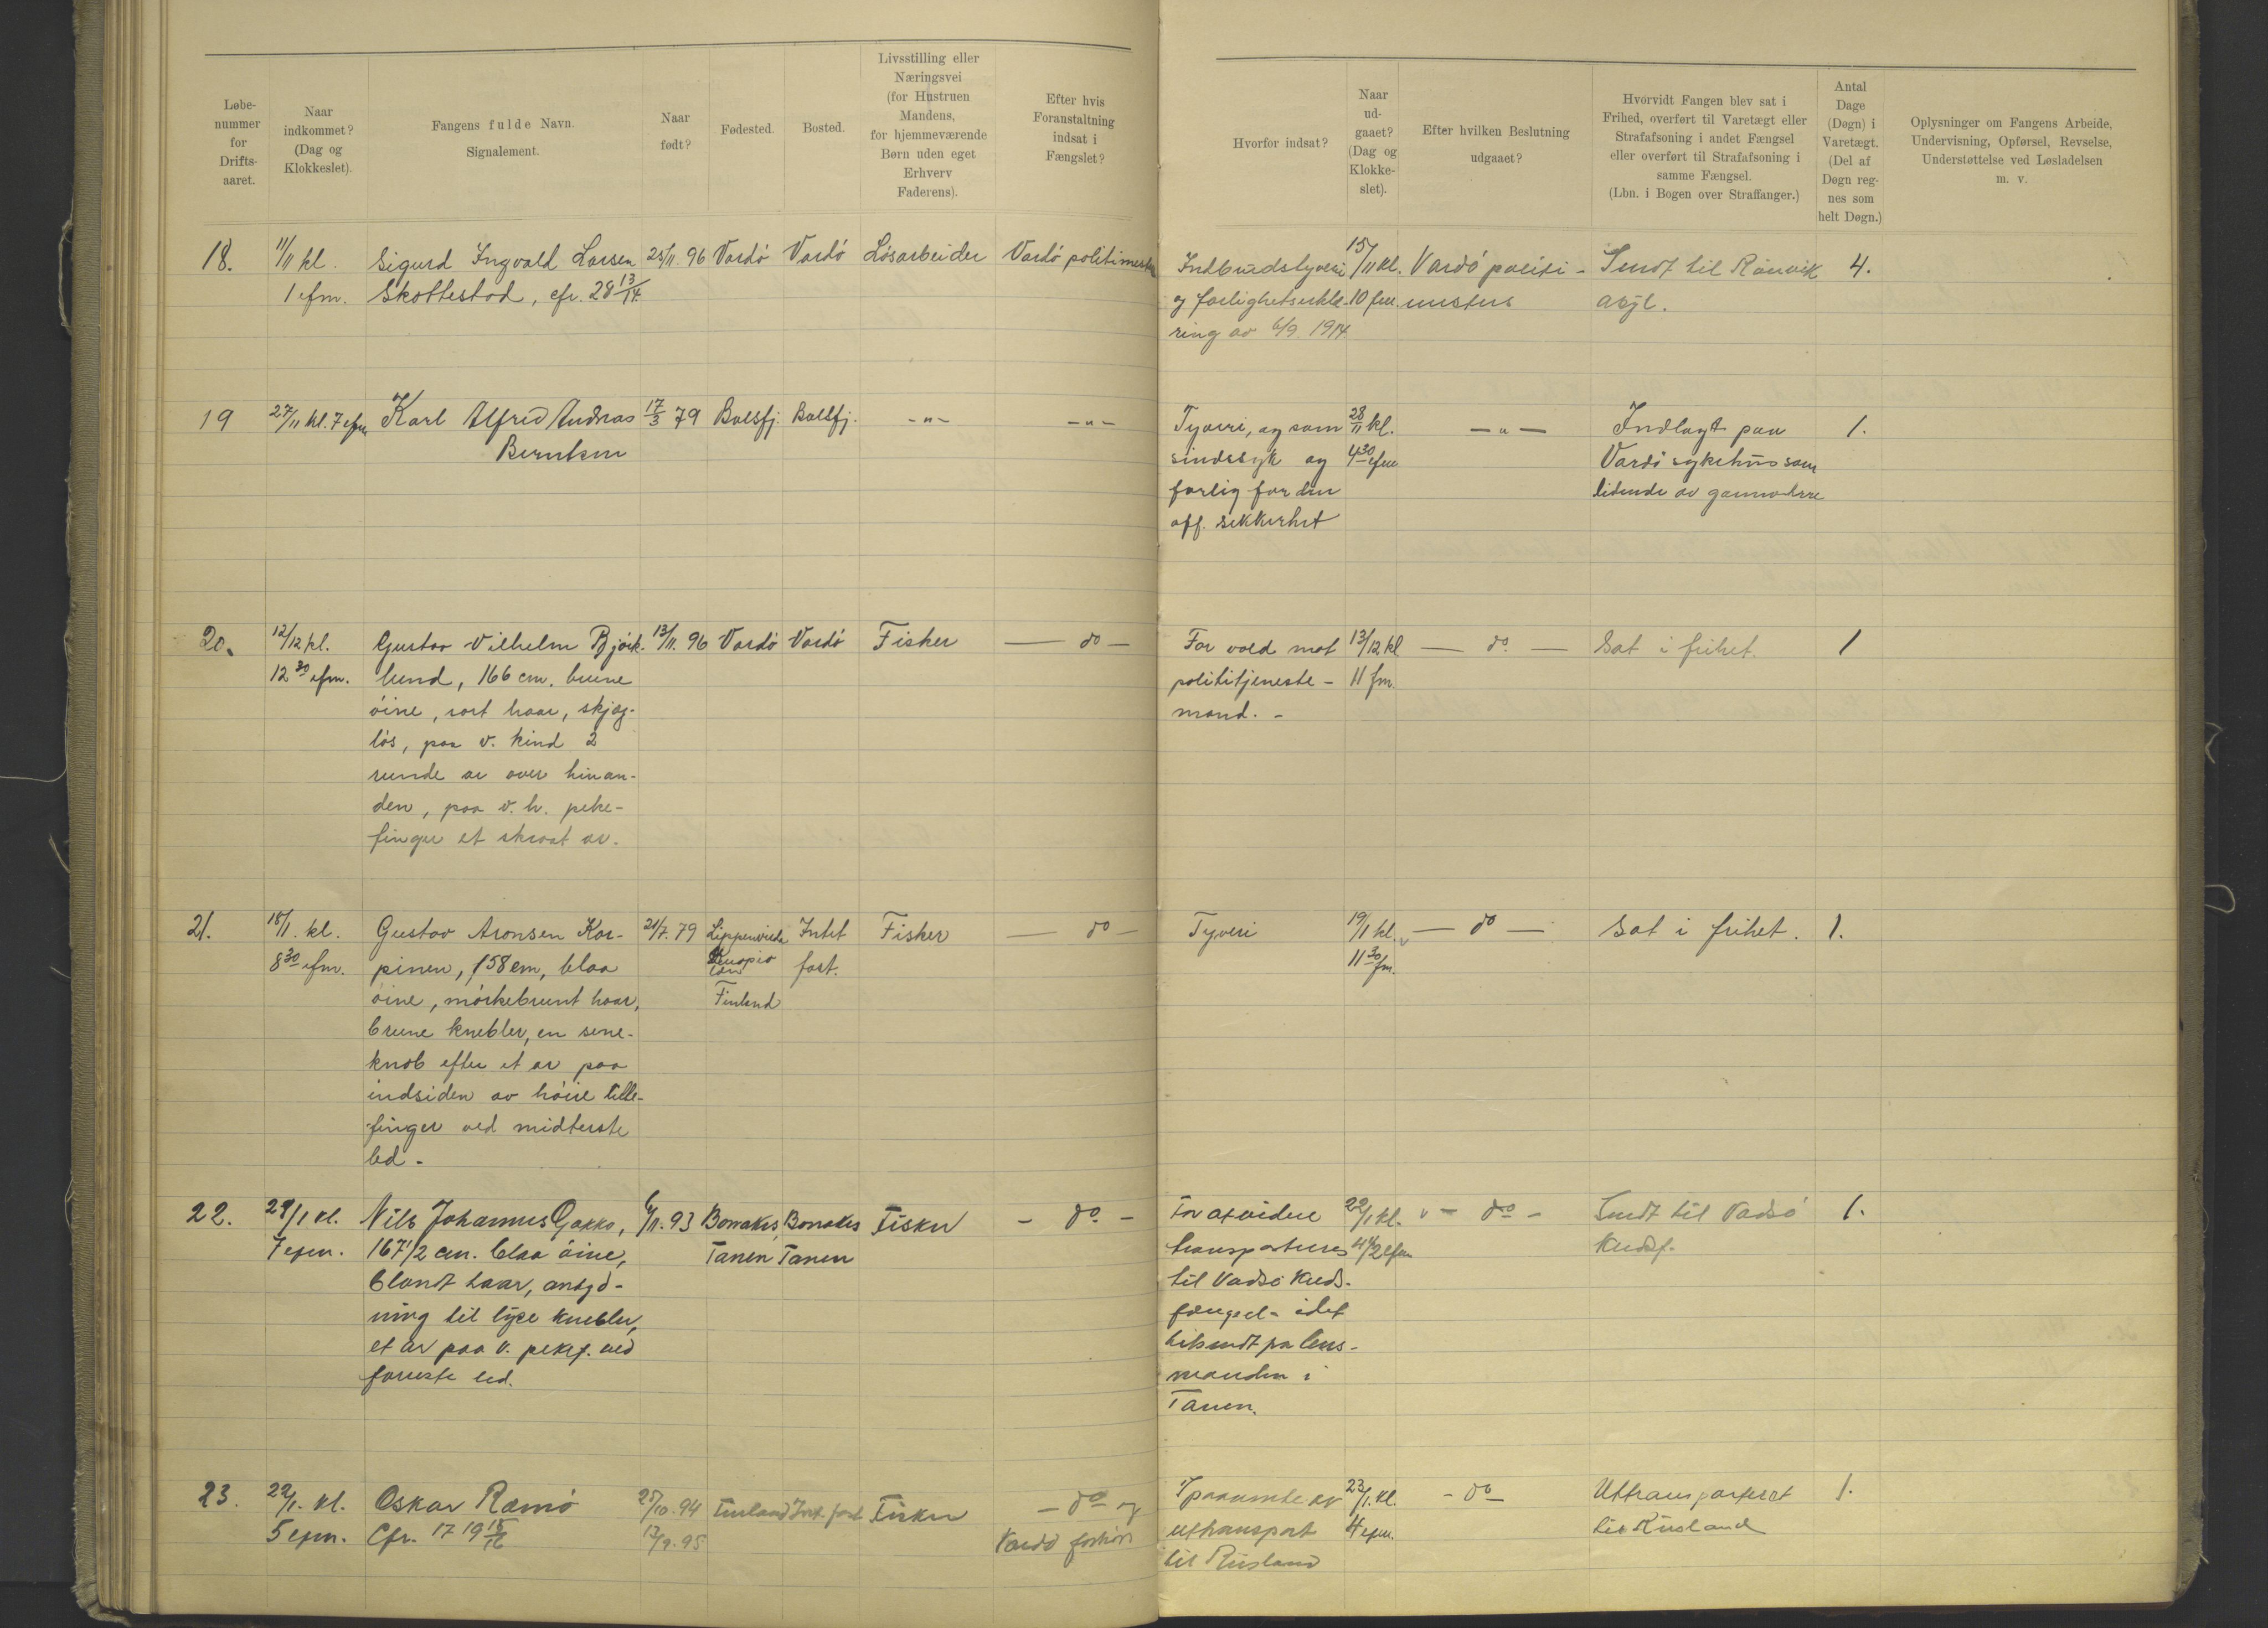 Løbe-
nummer
for
Drifts-
aaret.
Naar
indkommet?
(Dag og
Klokkeslet).
Fangens fulde Navn.
Signalement.
Naar
født?
Fødested.
Bosted.
Livsstilling eller
Næringsvei
(for Hustruen
Mandens,
for hjemmeværende
Børn uden eget
Erhverv
Faderens).
Efter hvis
Foranstaltning
indsat i
Fængslet?
Hvorfor indsat?
Naar
ud-
gaaet?
(Dag og
Klokke-
slet).
Efter hvilken Beslutning
udgaaet?
Hvorvidt Fangen blev sat i
Frihed, overført til Varetægt eller
Strafafsoning i andet Fængsel
eller overført til Strafafsoning i
samme Fængsel.
(Lbn. i Bogen over Straffanger.)
Antal
Dage
(Døgn) i
Varetægt.
(Del af
Døgn reg-
nes som
helt Døgn.)
Oplysninger om Fangens Arbeide,
Undervisning, Opførsel, Revselse,
Understøttelse ved Løsladelsen
m. v.
18.
11/11 kl.
1 efm.
Sigurd Ingvald Larsen
Skottestad, cfr. 28 13/14
25/11. 96
Vardö
Vardö
Lösarbeider
Vardö politimester
Indbrudstyveri
og farlighetserklæ-
ring av 6/9 1914.
15/11 kl.
10 fm.
Vardö politi-
mesters
Sendt til Rönvik
asyl.
4.
19
27/11 kl. 7 efm
Karl Alfred Andreas
Berntsen
17/3 79
Balsfj.
Balsfj.
-"-
-"-
Tyveri, og som
sindssyk og
farlig for den
off. sikkerhet
28/11 kl.
4 30 efm
-"-
Indlagt paa
Vardö sykehus som
lidende av gonnorhere
1.
20.
12/12 kl.
12 30 efm.
Gustav Vilhelm Björk-
lund, 166 cm. brune
öine, sort haar, skjæg-
lös, paa v. kind 2
runde ar over hinan-
den, paa v. h. peke-
finger et skraat ar.
13/11. 96
Vardö
Vardö
Fisker
— do —
For vold mot
polititjeneste-
mand. -
13/12 kl
11 fm.
— do. —
Sat i frihet.
1
21.
18/1. kl.
8 30 efm.
Gustav Aronsen Kor-
pinen, 158 cm, blaa
öine, mörkebrunt haar,
brune knebler, en sene-
knob efter et ar paa
indsiden av höire lille-
finger ved midterste
led -
21/7. 79
Finland
Intet
fast.
Fisker
— do —
Tyveri
19/1 kl.
11 30 fm.
— do —
Sat i frihet.
1.
22.
21/1 kl.
7 efm.
Nils Johannes Gakko,
167 1/2 cm. blaa öine,
blondt haar, antyd-
ning til lyse knebler,
et ar paa v. pekef. ved
forreste led.
6/11. 93
Bonakas,
Tanen
Bonakas
Tanen
Fisker
- do -
For at videre
transporteres
til Vadsö Kreds-
fængsel - idet
hitsendt fra lens-
manden i
Tanen.
22/1 kl.
4 1/2 efm
- do -
Sendt til Vadsö
Kredsf.
1.
23.
22/1. kl.
5 efm.
Oskar Ramö
Cfr. 17 19 15/16
25/10. 94
13/9. 95
Finland
Int. fast
Fisker
- do - og
Vardö
I paavente av
uttransport
til Rusland
23/1. kl.
4 efm.
- do -
Uttransportert
til Rusland
1.